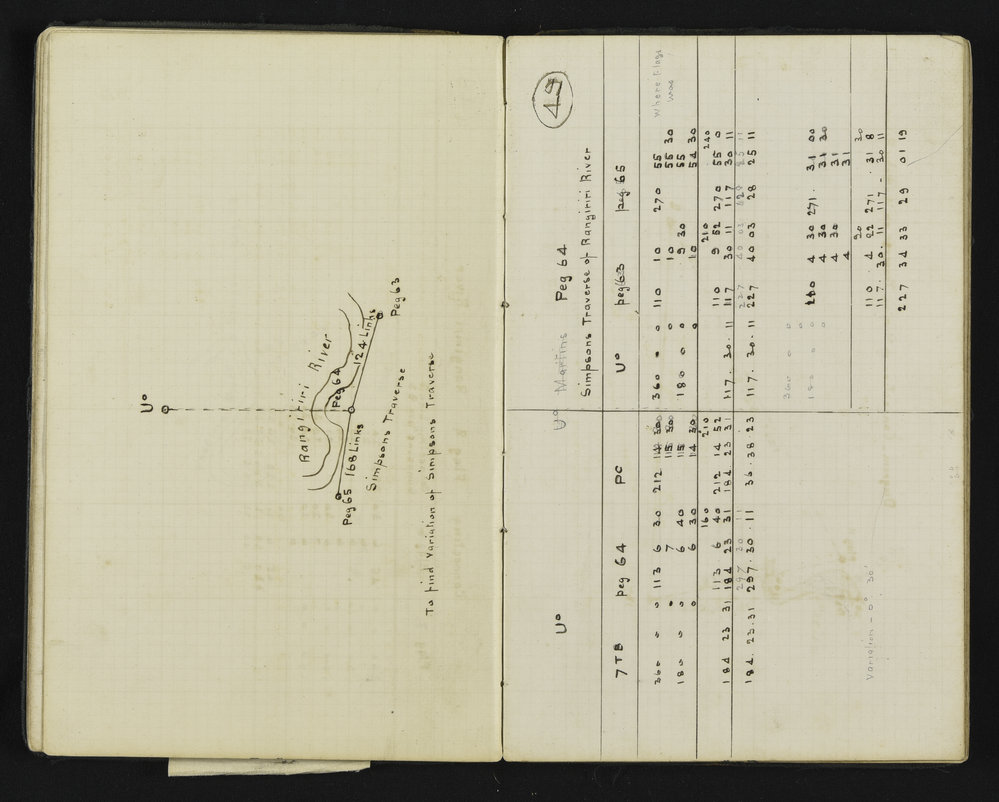 U°
Rangiriri River
Peg 64
Peg 65 168 Links 124 Links Peg 63
Simpsons Traverse
To find Variation of Simpsons Traverse
49
U° U° Martins Peg 64
Simpsons Traverse of Rangiriri River
7TB peg 64 PC U° peg63 peg 65
360 0 0 113 6 30 212 14 30 360 0 0 110 10 270 55 Where Flags
0 7 15 30 0 10 55 30 was
180 0 0 6 40 15 180 0 0 9 30 55
0 6 30 14 30 0 10 54 30
160 210 210 240
113 6 40 212 14 52 110 9 52 270 55 0
184 23 31 184 23 31 184 23 31 117 . 30 . 11 117 30 11 117 30 11
297 30 11 227 40 03 25 11
184 . 23 . 31 297 . 30 . 11 36 . 38 . 23 117 . 30 . 11 227 40 03 28 25 11
360 0 0
0
180 0 0 4 30 271 . 31 00
0 4 30 31 30
4 30 31
4 31
20 30
Variation – 0° 30' 110 . 4 22 271 . 31 8
117 . 30 . 11 117 - 30 11
227 34 33 29 01 19